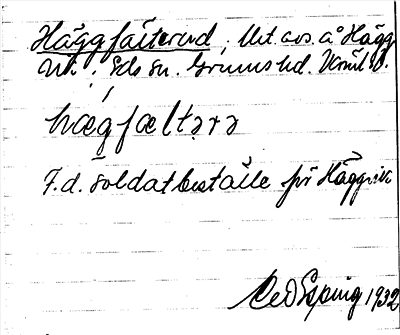 Häggfälterud, Utt. avs. å Hägg
vik, Eds sn. Grums hd. Värml.
hægfæltərə
F.d. soldatbeställe för Häggvik
1932